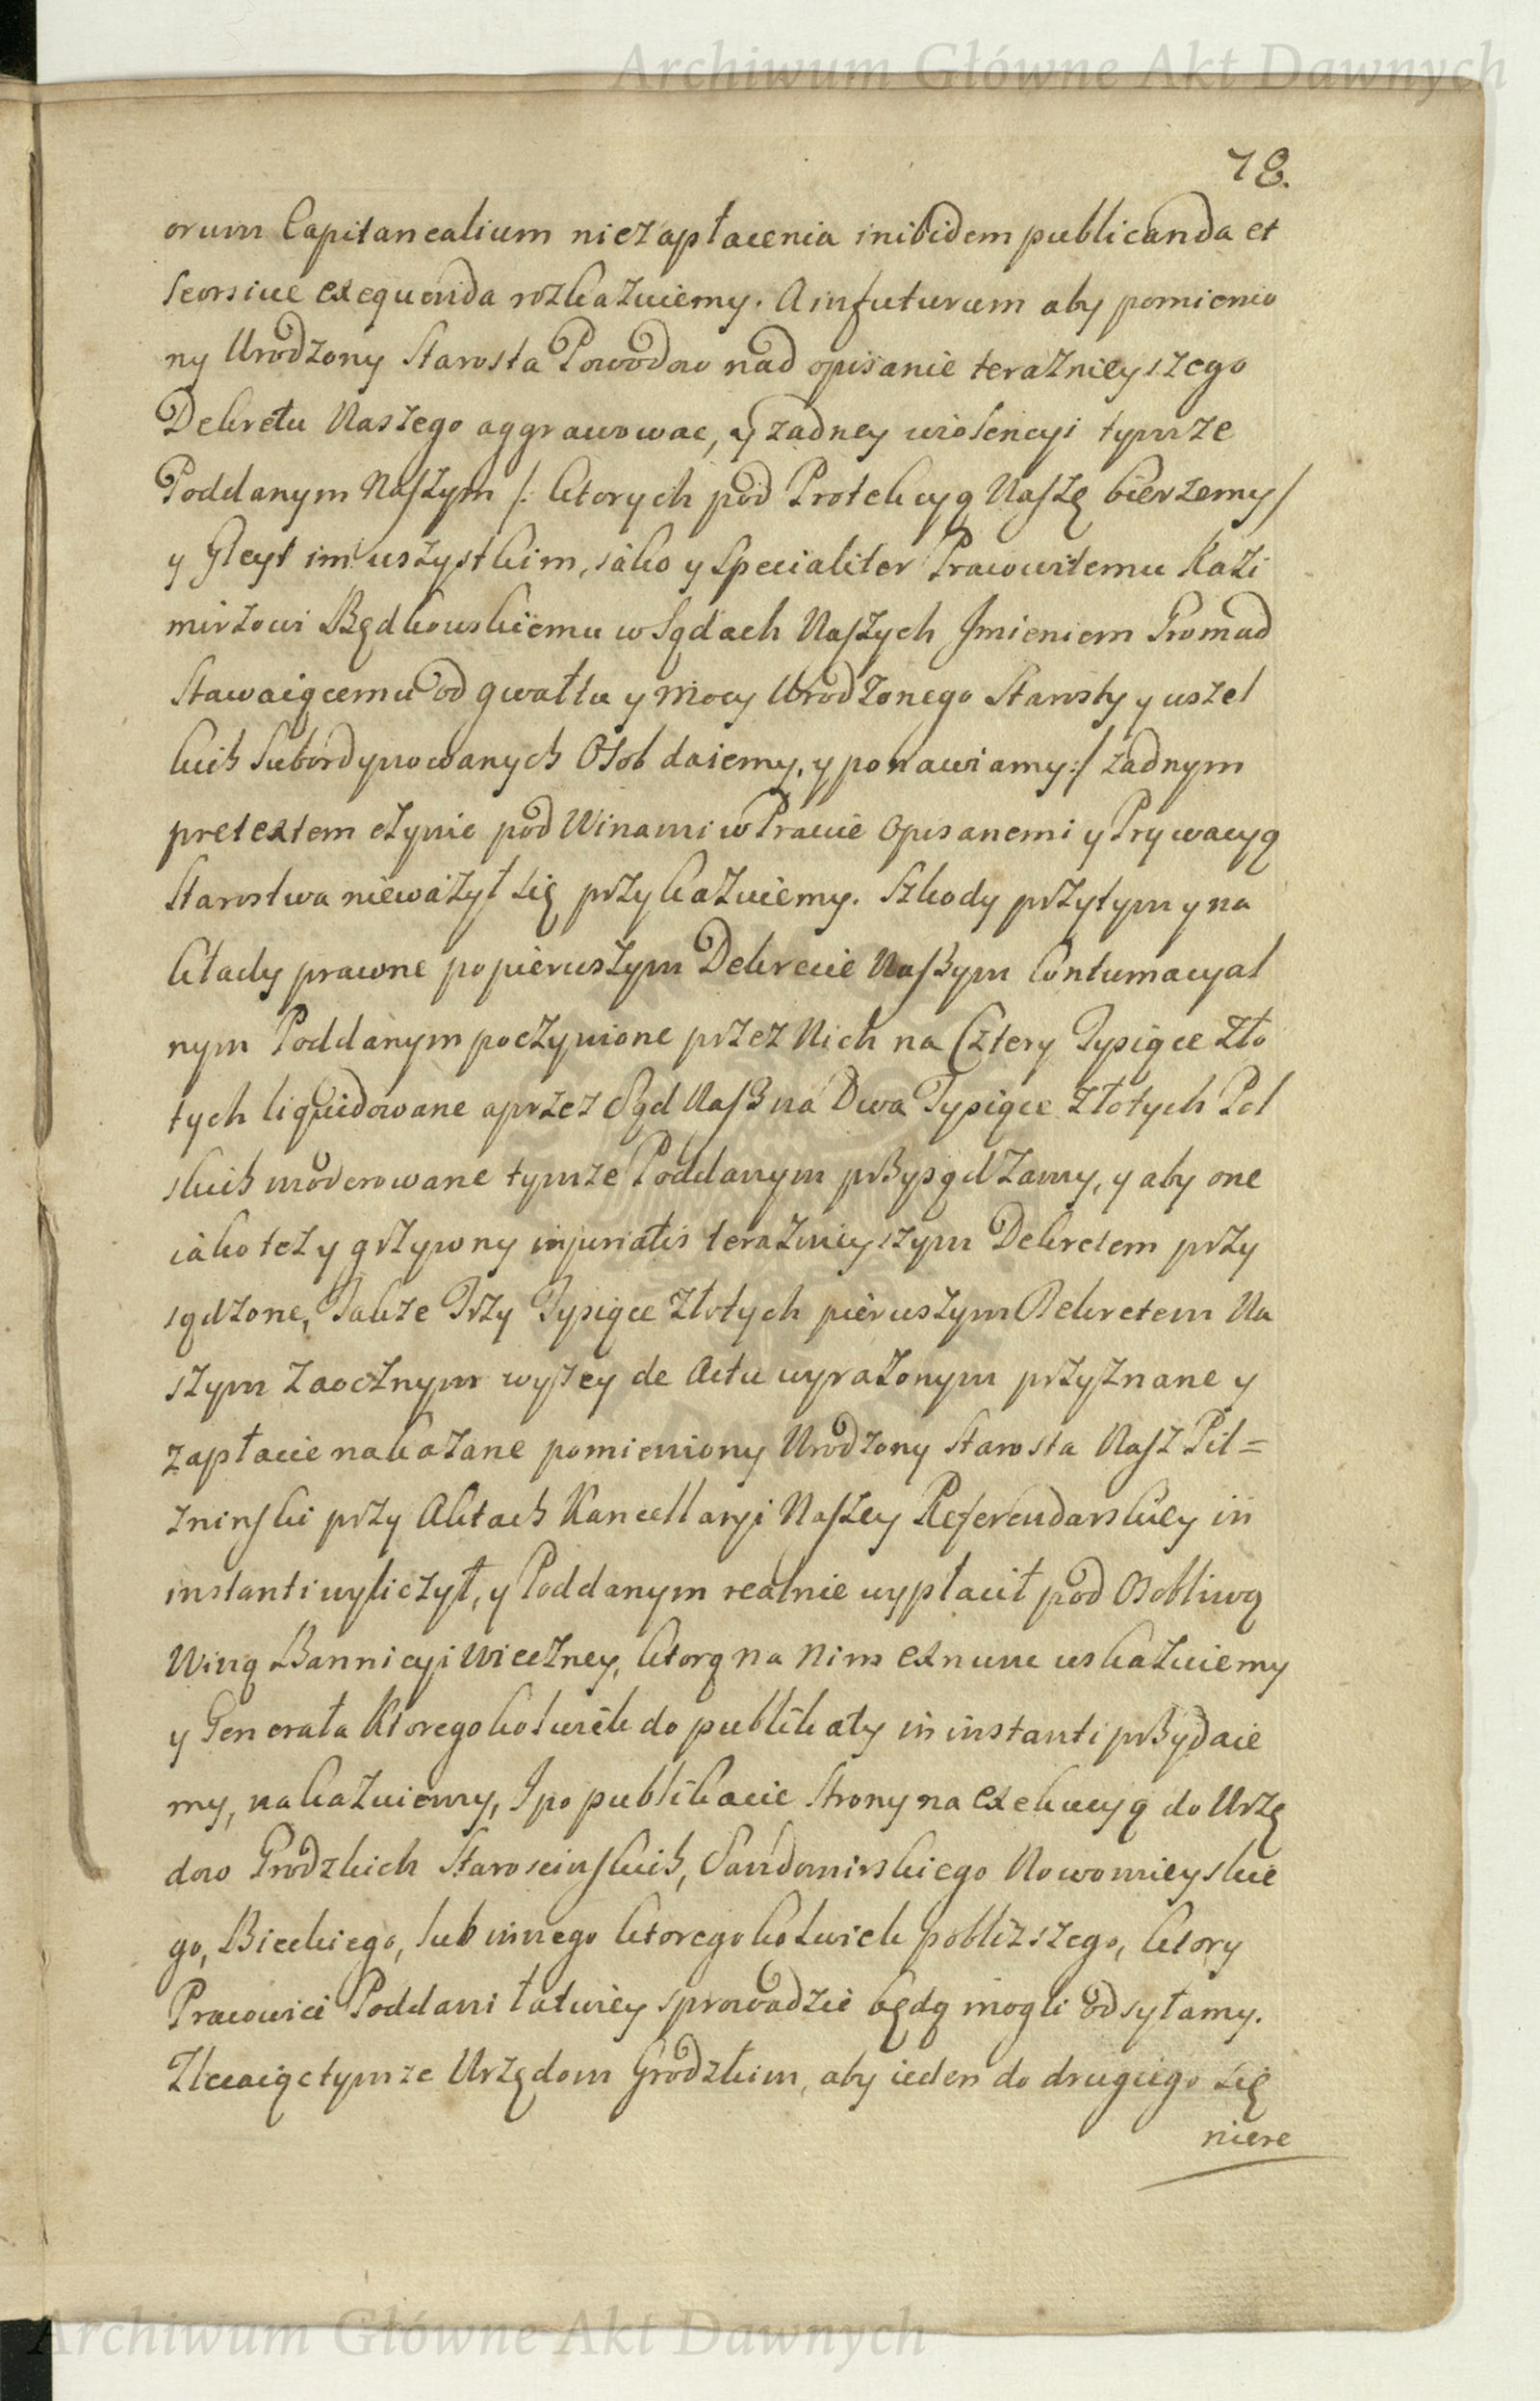 Archiwum Główne Akt Dawnych
78.
orum Capitanealium niezapłacenia inibidem publicanda et
seorsive exequenda rozkazuiemy. A in futurum aby pomienio
ny Urodzony Starosta Powodow nad opisanie teraznieyszego
Dekretu Naszego aggrawowac, y zadney wiolencyi tymze
Poddanym Naszym /: ktorych pod Protekcyą Naszę bierzemy/
y Gleyt im wszystkim, iako y specialiter Pracowitemu Kazi
mirzowi Będkowskiemu w Sądach Naszych Imieniem Gromad
Stawaiącemu od gwałtu y mocy Urodzonego Starosty y wszel
kich subordynowanych Osob daiemy, y ponawiamy:/ zadnym
pretextem czynic pod Winami w Prawie opisanemi y Prywacyą
Starostwa nieważył się przykazuiemy. Szkody przytym y na
kłady prawne po pierwszym Dekrecie Naszym Contumacyal
nym Poddanym poczynione przez Nich na Cztery Tysiące Zło
tych liquidowane a przez Sąd Nasz na Dwa Tysiące Złotych Pol
skich moderowane tymze Poddanym przysądzamy, y aby one
iako tez y grzywny injurialis teraznieyszym Dekretem przy
sądzone, Takze Trzy Tysiące Złotych pierwszym Dekretem Na
szym zaocznym wyzey de Actu wyrazonym przyznane y
zapłacic nakazane pomieniony Urodzony Starosta Nasz Pil=
zninski przy Aktach Kancellaryi Naszey Referendarskiey in
instanti wyliczył, y Poddanym realnie wypłacił pod Osobliwą
Winą Bannicyi Wieczney, ktorą na Nim ex nunc wskazuiemy
y Generała Ktoregokolwiek do publikaty in instanti przydaie
my, nakazuiemy, I po publikacie Strony na exekucyą do Urzę
dow Grodzkich Staroscinskich, Sandomirskiego Nowomieyskie
go, Bieckiego, lub innego ktoregokolwiek poblizszego, ktory
Pracowici Poddani łatwiey sprowadzic będą mogli odsyłamy.
Zlecaiąc tymze Urzędom Grodzkim, aby ieden do drugiego się
niere
Archiwum Główne Akt Dawnych